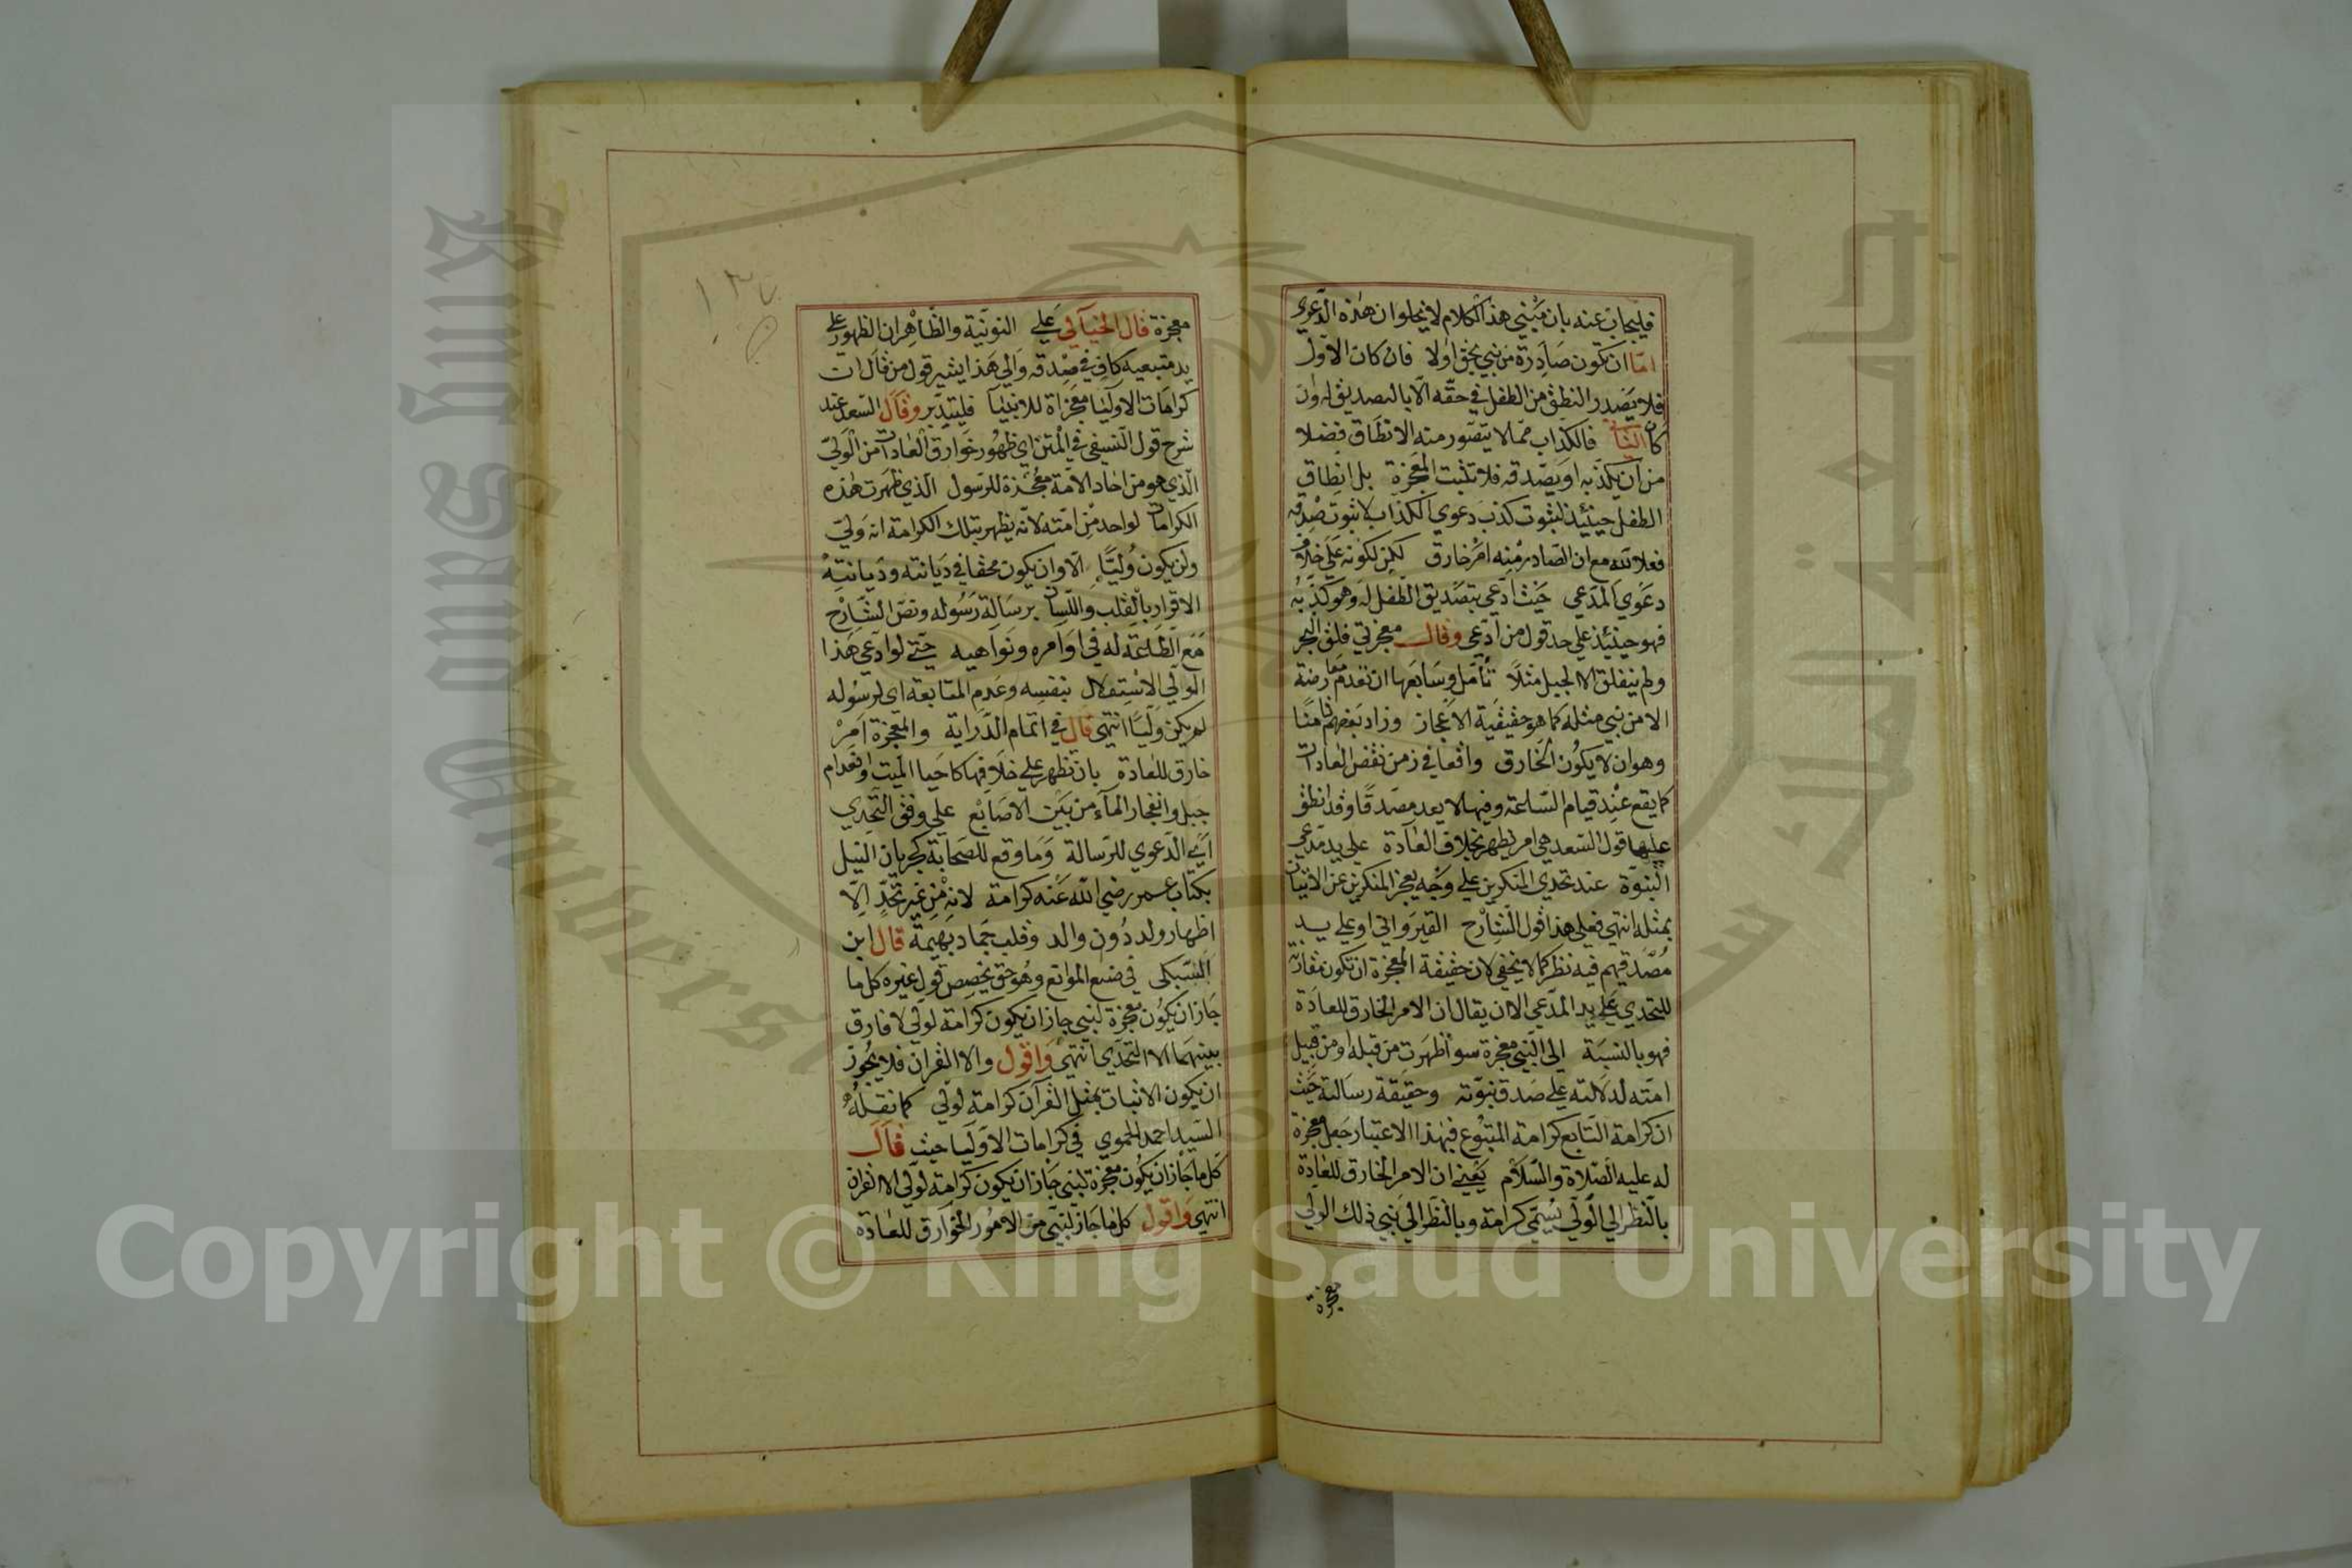 فليجاب عنه بان مبني هذا الكلام لا يخلوان هذه الدعوي
امّا ان تكون صادرة من نبي بحق اولا فان كان الاول
فلا يصدر النطق من الطفل في حقه الا بالتصديق له وان
كان الثاني فالكذاب مما لا يتصور منه الانطاق فضلا
من ان يكذبه او يصدقه فلا تثبت المعجزة بل انطاق
الطفل حينئيذ لثبوت كذب دعوي الكذاب لا ثبوت صدقه
فعلا لله مع ان الصادر منه امر خارق لكن لكونه علي خلاف
دعوي المدعي حيث ادعي بتصديق الطفل له وهو كذبه
فهو حينئيذ علي حد قول من ادعي وقال معجزتي فلق البحر
ولم ينفلق الا الجبل مثلاً تأمل وسابعها ان تعدم معارضة
الا من نبي مثله كما هو حقيقية الاعجاز وزاد بعضهم ثامنا
وهو ان لا يكون الخارق واقعا في زمن نقض العادات
كما يقع عند قيام الساعة وفيها لا يعد مصدقًا وقد انطق
عليها قول السعد هي امر يظهر بخلاف العادة علي يد مدعي
النبوة عند تحدي المنكرين علي وجه يعجز المنكرين عن الاتيان
بمثله انتهي فعلي هذا قول الشارح القيرواني او علي يد
مصدقهم فيه نظر كما لا يخفي لان حقيقة المعجزة ان تكون مقارنة
للتحدي علي يد المدعي الا ان يقال ان الامر الخارق للعادة
فهو بالنسبة الي النبي معجزة سواً ظهرت من قبله او من قبيل
امته لدلالته علي صدق نبوته وحقيقة رسالته حيث
ان كرامة التابع كرامة المتبوع فبهذا الاعتبار جعل معجزة
له عليه الصلاة والسلام يعني ان الامر الخارق للعادة
بالنظر الي الولي يسمي كرامة وبالنظر الي نبي ذلك الولي
معجزة
١٣٧
معجزة قال الخيالي علي النونية والظاهر ان الظهور علي
يد متبعيه كاف في صدقه والي هذا يشير قول من قال ان
كرامات الاوليا معجزاة للانبيا فليتدبر وقال السعد عند
شرح قول النسيفي في المتن اي ظهور خوارق العادات من الولي
الذي هو من احاد الامة معجزة للرسول الذي ظهرت هذه
الكرامات لواحد من امته لانه يظهر بتلك الكرامة انه ولي
ولن يكون وليًّا الا وان يكون محقا في ديانته وديانته
الاقرار بالقلب واللسان برسالة رسوله ونص الشارح
مع الطاعة له في اوامره ونواهيه حتي لو ادعي هذا
الولي الاستقلال بنفسه وعدم المتابعة اي لرسوله
لم يكن وليًا انتهي قال في اتمام الدراية والمعجزة امر
خارق للعادة بان تظهر علي خلافها كاحيا الميت وانعدام
جبل وانفجار الماء من بين الاصابع علي وفق التحدي
اي الدعوي للرسالة وما وقع للصحابة كجريان النيل
بكتاب عمر رضي الله عنه كرامة لانه من غير تحدٍّ الا
اظهار ولد دون والد وقلب جماد بهيمة قال ابن
السبكي في منع الموانع وهو حق يخصص قول غيره كل ما
جازان يكون معجزة لنبي جازان يكون كرامة لولي لا فارق
بينهما الا التحدي انتهي واقول والا القران فلا يجوز
ان يكون الاثبات بمثل القرآن كرامة لولي كما نقله
السيد احمد الحموي في كرامات الاوليا حيث قال
كل ما جازان يكون معجزة لنبي جازان يكون كرامة لولي الا القراة
انتهي واقول كل ما جاز لنبي من الامور الخوارق للعادة
King Saud University
Copyright © King Saud University